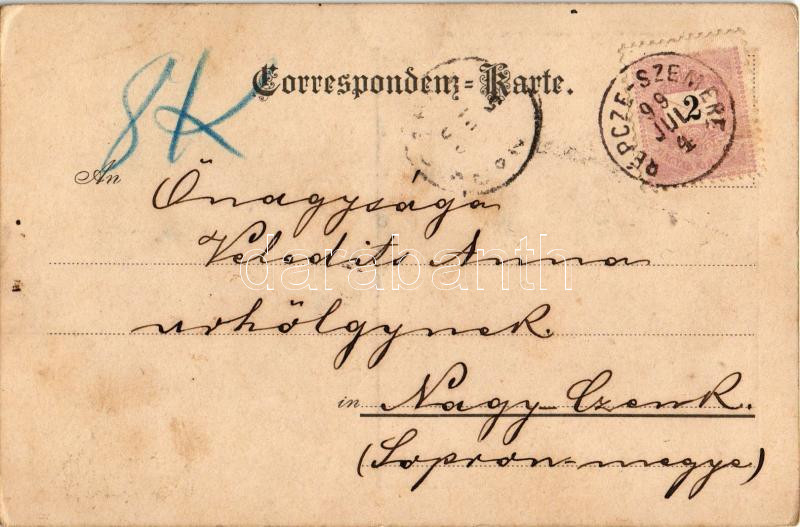 8K
Correspondenz-Karte.
RÉPCZE-SZEMERE
99
JUL
4
2
An Őnagysága
Veledits Anna
darabanth
urhölgynek.
in Nagy-Czenk.
(Sopron-megye)